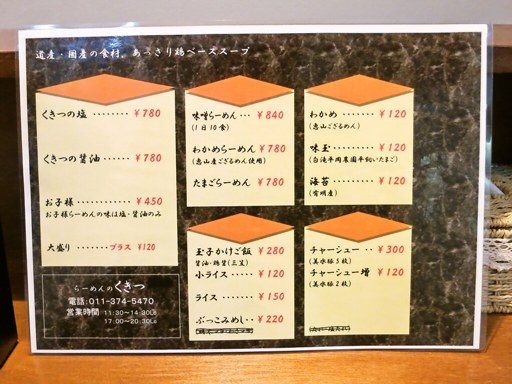 道産・国産の食材。あっさり鶏ベーススープ
くきつの塩 ········ ¥780
くきつの醤油 ······ ¥780
お子様 ········ ¥450
お子様らーめんの味は塩・醤油のみ
大盛り ······· プラス ¥120
味噌らーめん··· ¥840
(1日10食)
わかめらーめん ¥780
(恵山産ござるめん使用)
たまごらーめん ¥780
わかめ ······ ¥120
(恵山ござるめん)
味玉 ········ ¥120
海苔 ········ ¥120
(有明産)
玉子かけご飯 ¥280
小ライス ····· ¥120
ライス ······· ¥150
ぶっこみめし·· ¥220
チャーシュー ·· ¥300
チャーシュー増 ¥120
らーめんのくきつ
電話:011-374-5470
営業時間 11:30~14:30LS
17:00~20:30LS